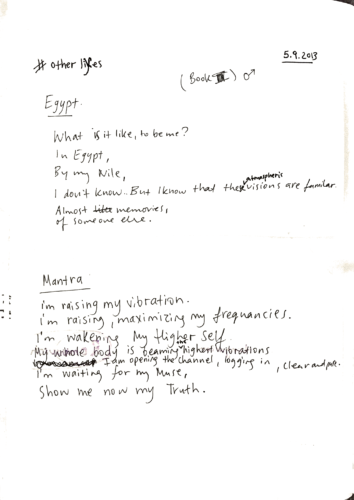 5.9.2013
# other lives
(Book II) ♂
Egypt.
What is it like, to be me?
In Egypt,
By my Nile,
I don't know.. But I know that these atmospheric visions are familar
Almost memories,
of someone else.
Mantra
i'm raising my vibration.
i'm raising, maximizing my frequancies.
I'm wakening My Higher Self
My whole body is beaming the highest vibrations
I am opening the channel, logging in, clear and pure.
I'm waiting for my Muse,
Show me now my Truth.